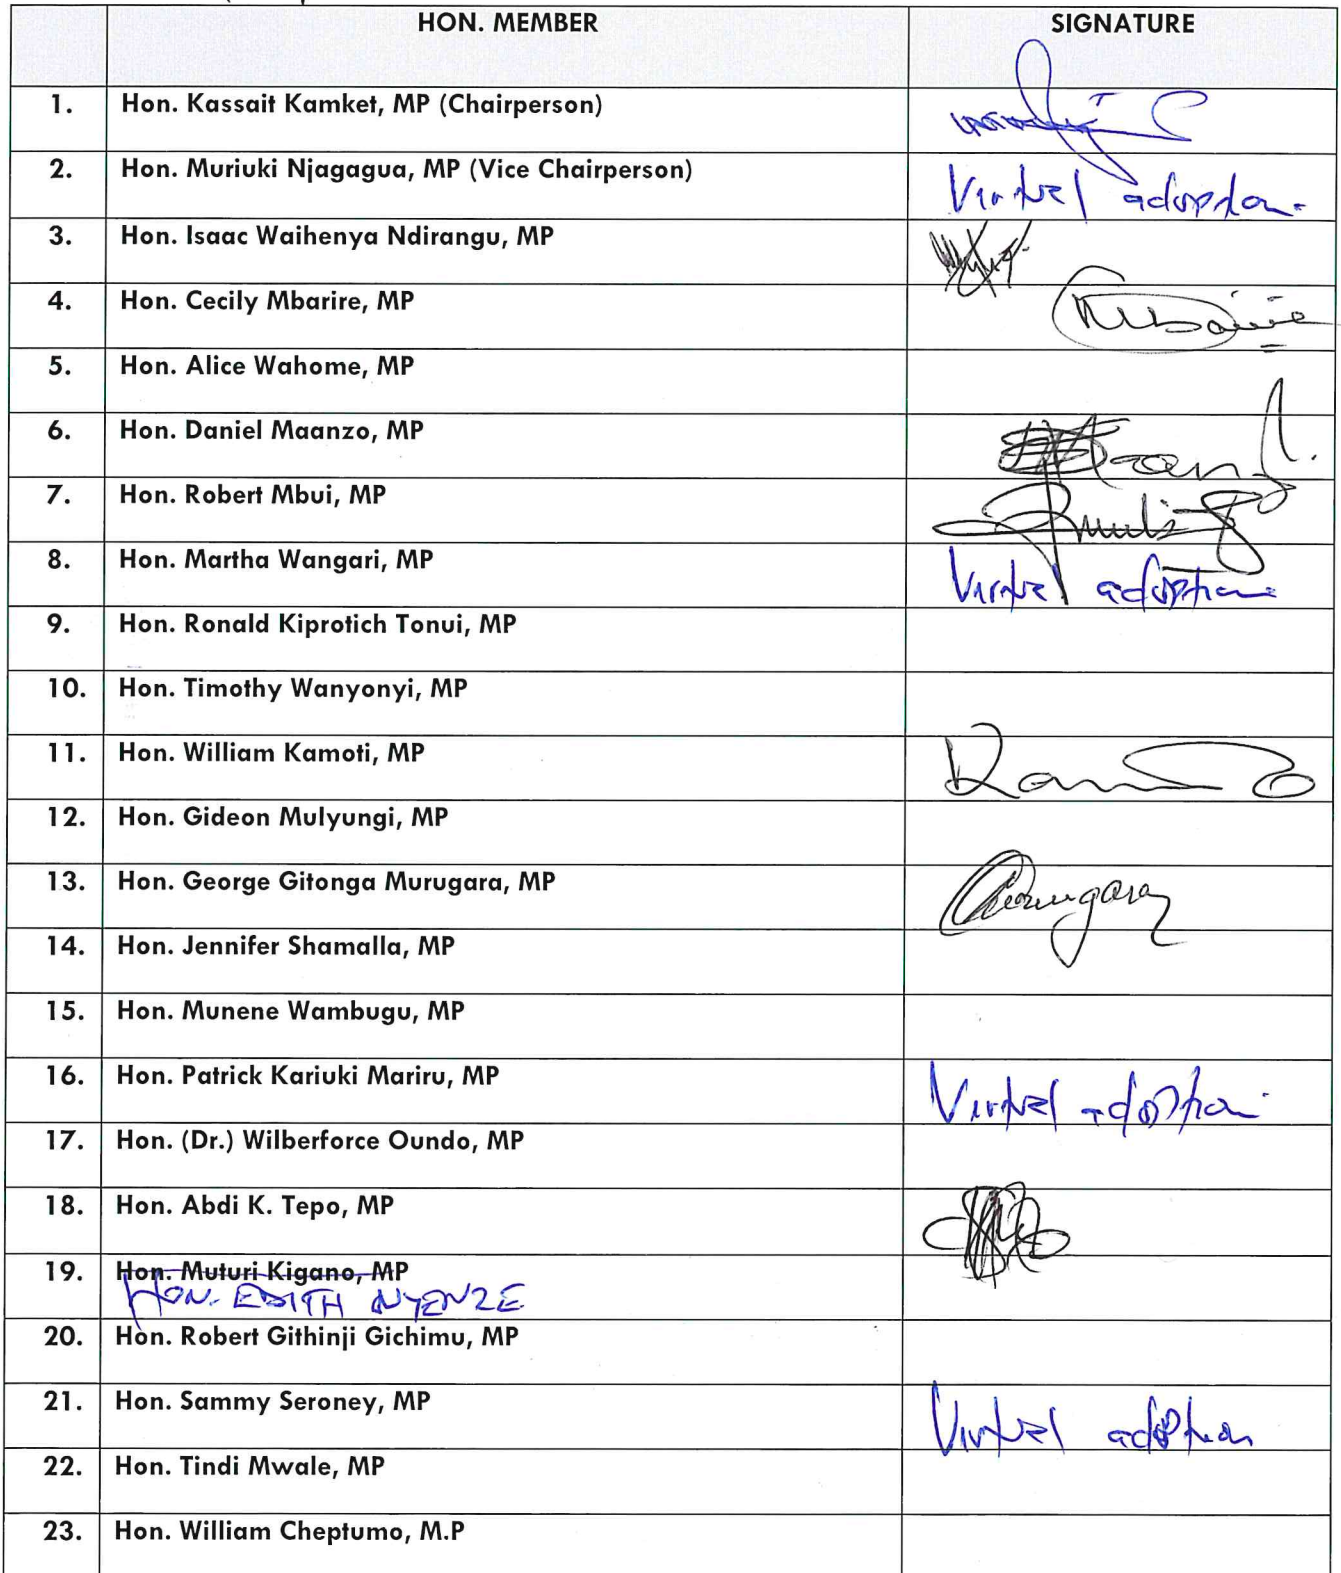 HON. MEMBER SIGNATURE
1. Hon. Kassait Kamket, MP (Chairperson)
2. Hon. Muriuki Njagagua, MP (Vice Chairperson) Virtual adoption
3. Hon. Isaac Waihenya Ndirangu, MP
4. Hon. Cecily Mbarire, MP
5. Hon. Alice Wahome, MP
6. Hon. Daniel Maanzo, MP
7. Hon. Robert Mbui, MP
8. Hon. Martha Wangari, MP Virtual adoption
9. Hon. Ronald Kiprotich Tonui, MP
10. Hon. Timothy Wanyonyi, MP
11. Hon. William Kamoti, MP
12. Hon. Gideon Mulyungi, MP
13. Hon. George Gitonga Murugara, MP
14. Hon. Jennifer Shamalla, MP
15. Hon. Munene Wambugu, MP
16. Hon. Patrick Kariuki Mariru, MP Virtual adoption
17. Hon. (Dr.) Wilberforce Oundo, MP
18. Hon. Abdi K. Tepo, MP
19. Hon. Muturi Kigano, MP
HON. EDITH NYENZE
20. Hon. Robert Githinji Gichimu, MP
21. Hon. Sammy Seroney, MP Virtual adoption
22. Hon. Tindi Mwale, MP
23. Hon. William Cheptumo, M.P